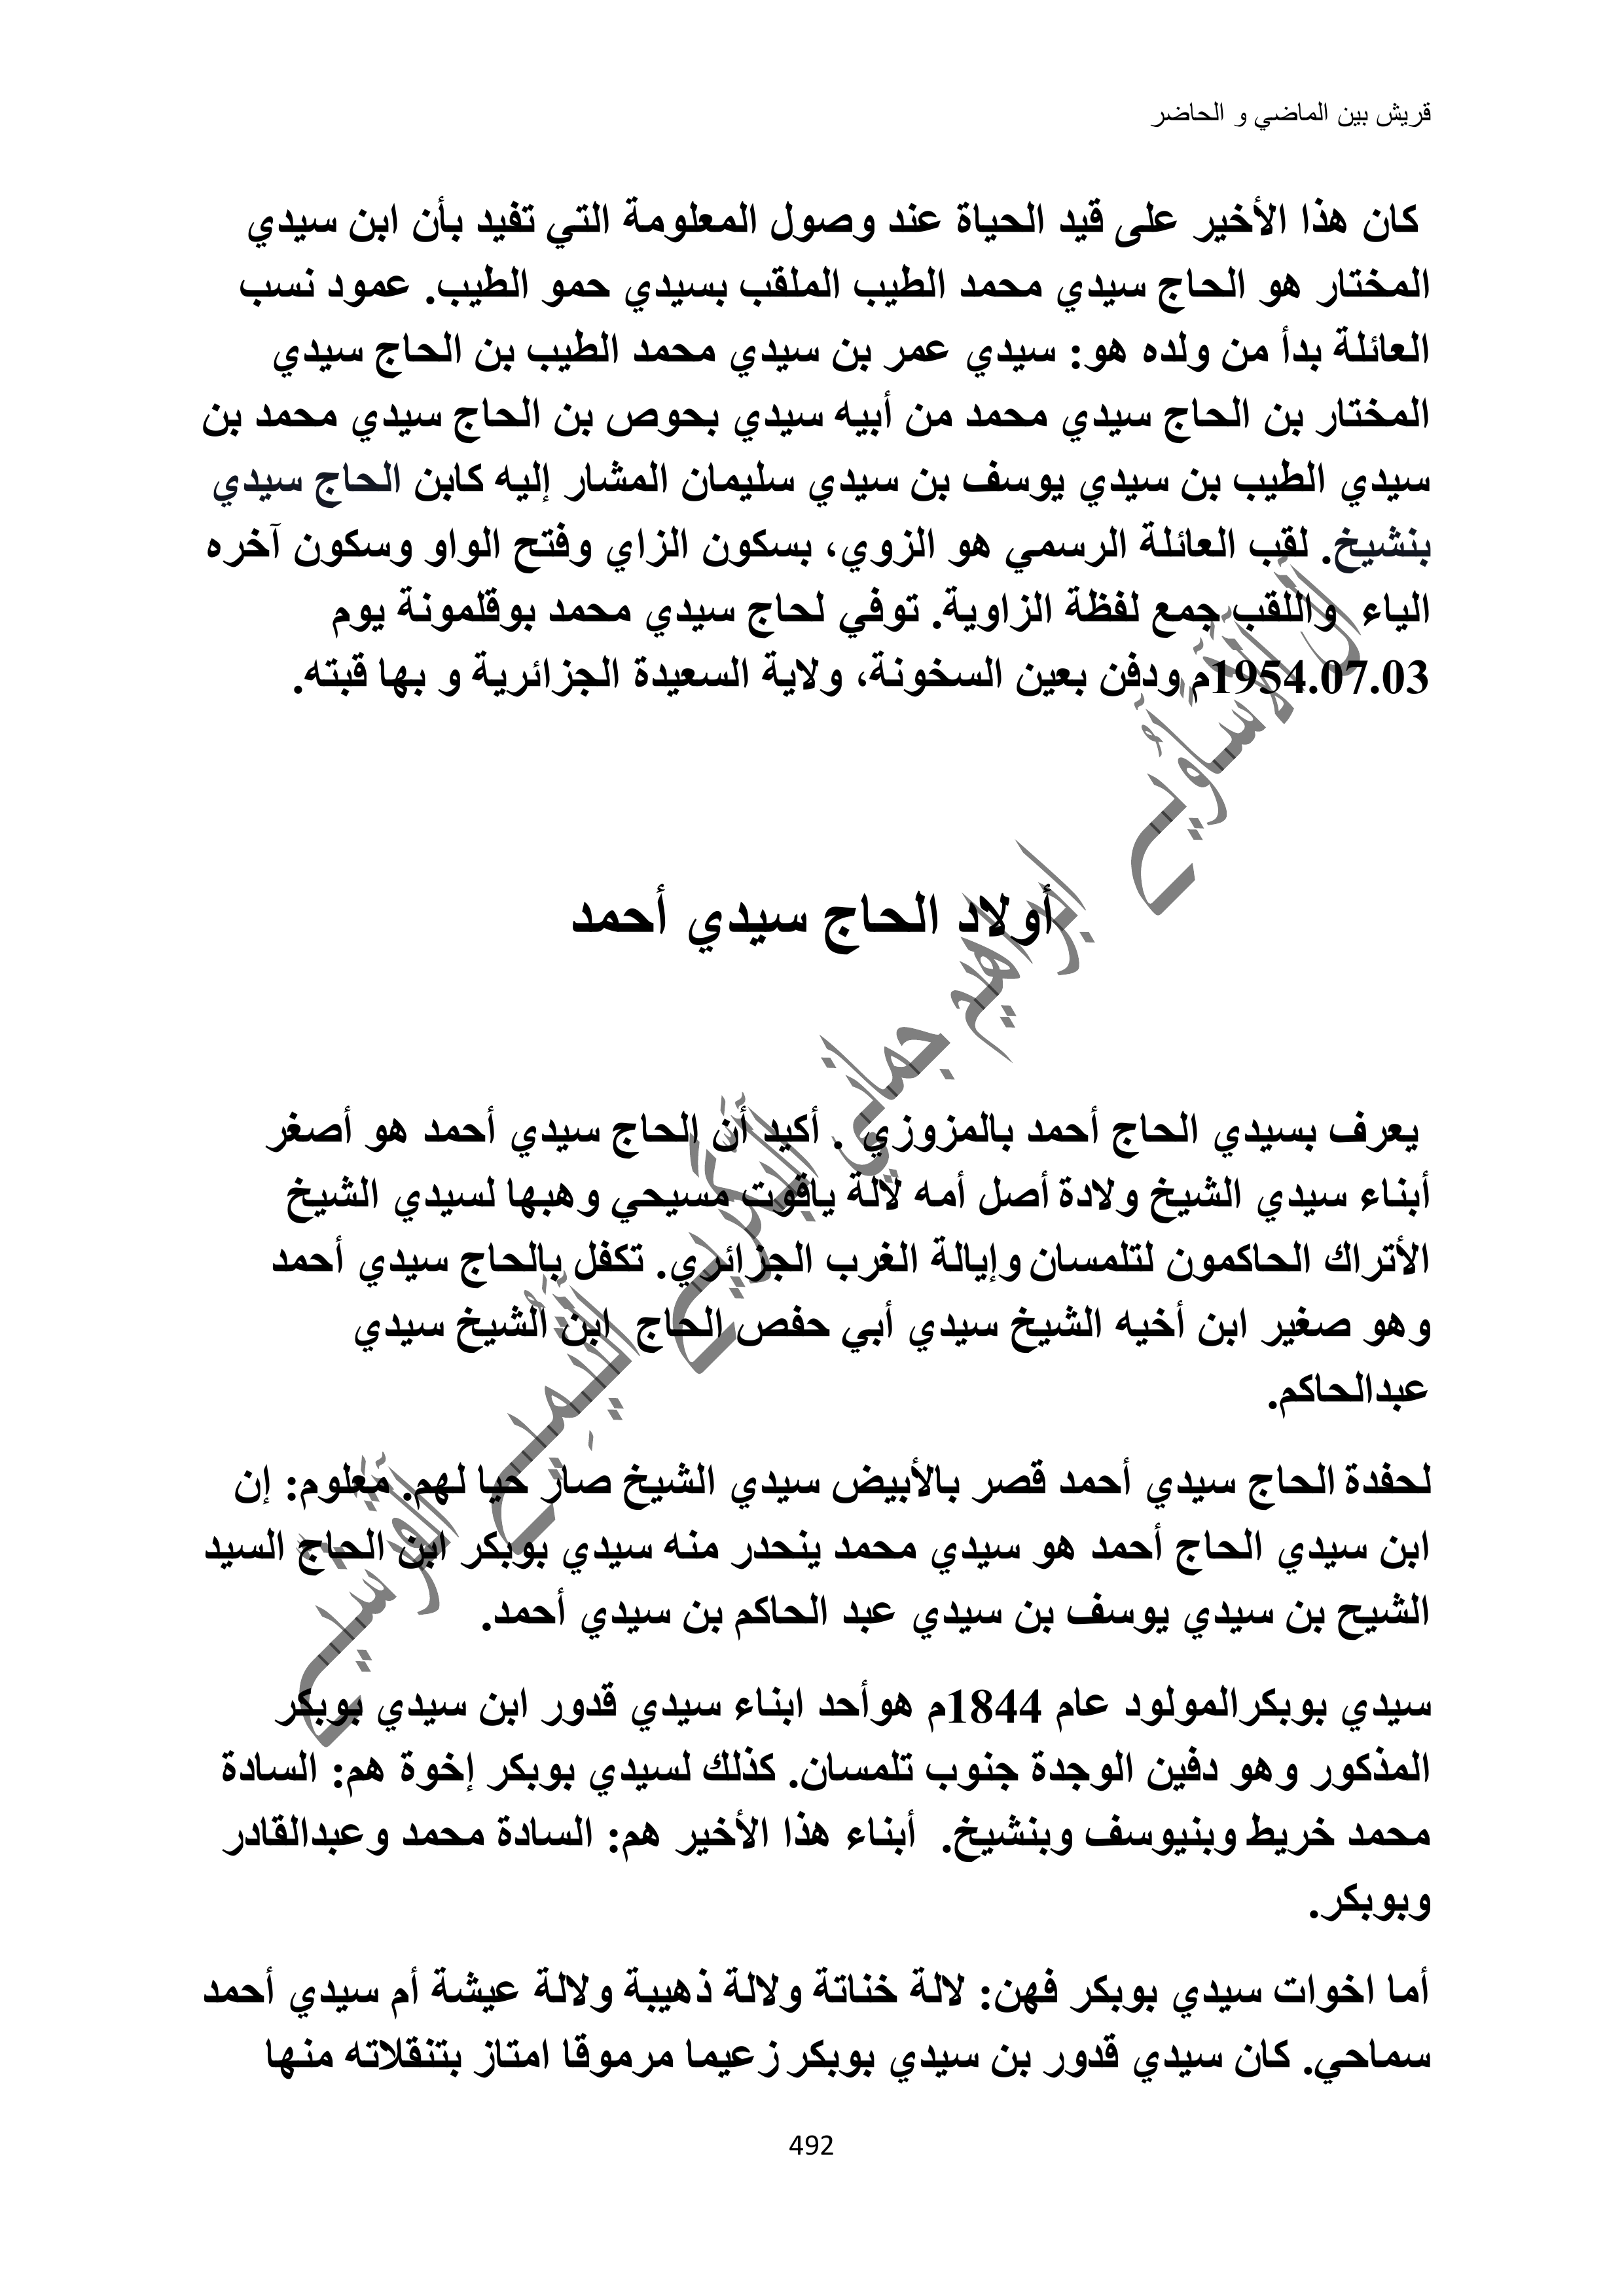 قريش بين الماضي و الحاضر
كان هذا الأخير على قيد الحياة عند وصول المعلومة التي تفيد بأن ابن سيدي
المختار هو الحاج سيدي محمد الطيب الملقب بسيدي حمو الطيب. عمود نسب
العائلة بدأ من ولده هو: سيدي عمر بن سيدي محمد الطيب بن الحاج سيدي
المختار بن الحاج سيدي محمد من أبيه سيدي بحوص بن الحاج سيدي محمد بن
سيدي الطيب بن سيدي يوسف بن سيدي سليمان المشار إليه كابن الحاج سيدي
بنشيخ. لقب العائلة الرسمي هو الزوي، بسكون الزاي وفتح الواو وسكون آخره
الياء واللقب جمع لفظة الزاوية. توفي لحاج سيدي محمد بوقلمونة يوم
1954.07.03م ودفن بعين السخونة، ولاية السعيدة الجزائرية و بها قبته.
أولاد الحاج سيدي أحمد
يعرف بسيدي الحاج أحمد بالمزوزي . أكيد أن الحاج سيدي أحمد هو أصغر
أبناء سيدي الشيخ ولادة أصل أمه لالة ياقوت مسيحي وهبها لسيدي الشيخ
الأتراك الحاكمون لتلمسان وإيالة الغرب الجزائري. تكفل بالحاج سيدي أحمد
وهو صغير ابن أخيه الشيخ سيدي أبي حفص الحاج ابن الشيخ سيدي
عبدالحاكم.
لحفدة الحاج سيدي أحمد قصر بالأبيض سيدي الشيخ صار حيا لهم. معلوم: إن
ابن سيدي الحاج أحمد هو سيدي محمد ينحدر منه سيدي بوبكر ابن الحاج السيد
الشيح بن سيدي يوسف بن سيدي عبد الحاكم بن سيدي أحمد.
سيدي بوبكرالمولود عام 1844م هوأحد ابناء سيدي قدور ابن سيدي بوبكر
المذكور وهو دفين الوجدة جنوب تلمسان. كذلك لسيدي بوبكر إخوة هم: السادة
محمد خريط وبنيوسف وبنشيخ. أبناء هذا الأخير هم: السادة محمد وعبدالقادر
وبوبكر.
أما اخوات سيدي بوبكر فهن: لالة خناتة ولالة ذهيبة ولالة عيشة أم سيدي أحمد
سماحي. كان سيدي قدور بن سيدي بوبكر زعيما مرموقا امتاز بتنقلاته منها
492